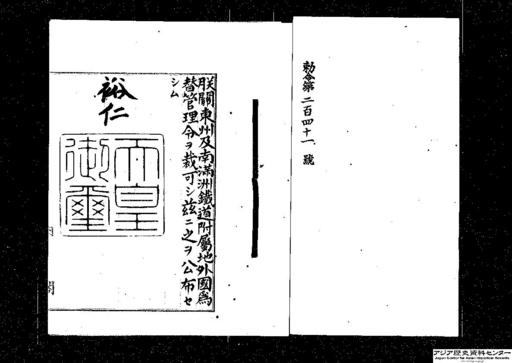 勅令第二百四十一號
朕關東州及南滿洲鐵道附屬地外國爲
替管理令ヲ裁可シ茲ニ之ヲ公布セ
シム
裕仁
天皇
御璽
内閣
アジア歴史資料センター
Japan Center for Asian Historical Records